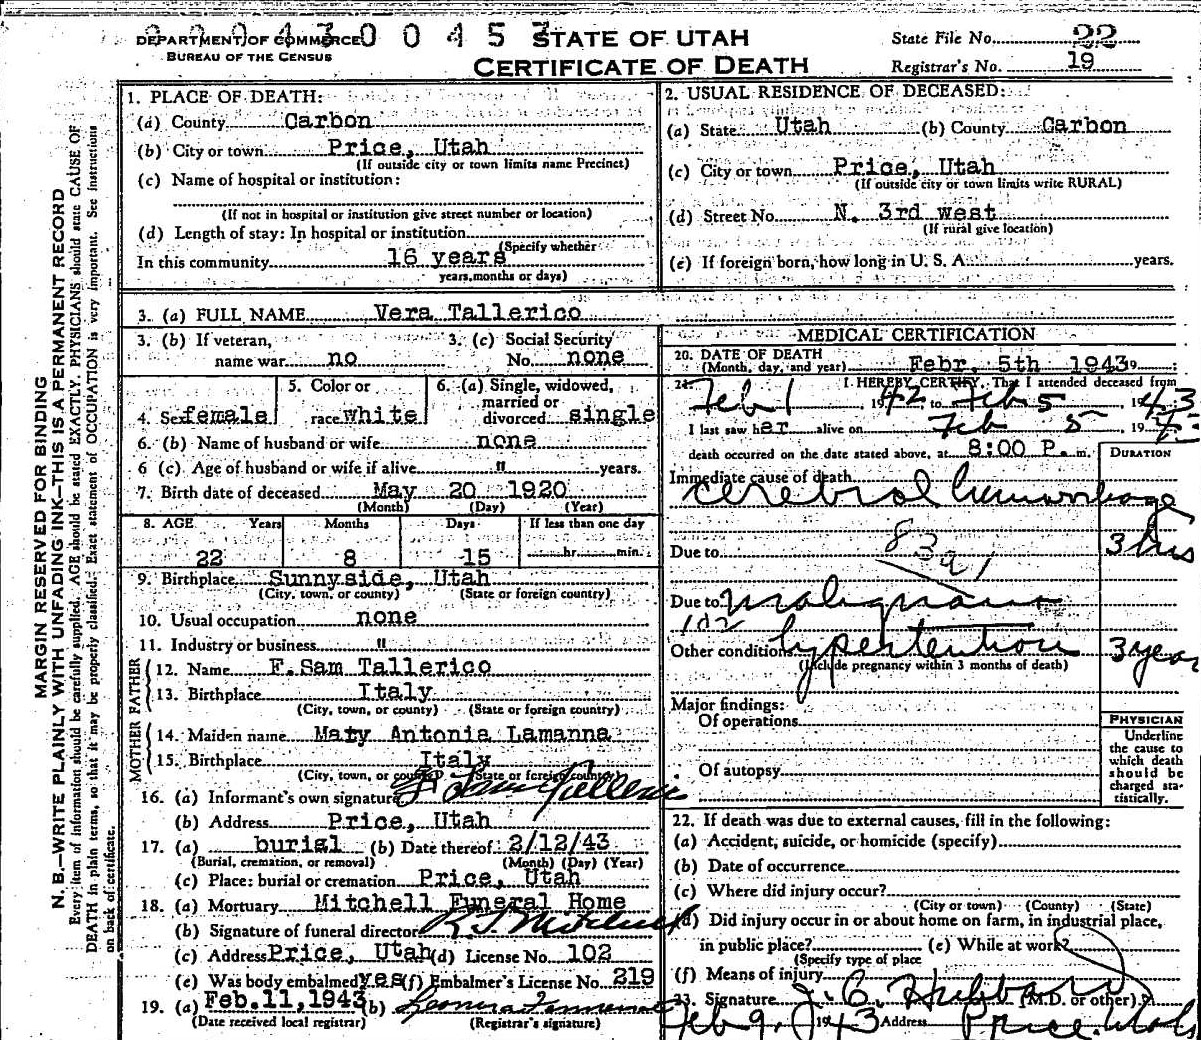 0 0 4 3 0 0 4 5 3
DEPARTMENT OF COMMERCE
BUREAU OF THE CENSUS
STATE OF UTAH
CERTIFICATE OF DEATH
State File No. 22
Registrar's No. 19
MARGIN RESERVED FOR BINDING
N. B.—WRITE PLAINLY WITH UNFADING INK—THIS IS A PERMANENT RECORD
Every item of information should be carefully supplied. AGE should be stated EXACTLY. PHYSICIANS should state CAUSE OF
DEATH in plain terms, so that it may be properly classified. Exact statement of OCCUPATION is very important. See instructions
on back of certificate.
1. PLACE OF DEATH:
(a) County Carbon
(b) City or town Price, Utah
(If outside city or town limits name Precinct)
(c) Name of hospital or institution:
(If not in hospital or institution give street number or location)
(d) Length of stay: In hospital or institution
(Specify whether
In this community 16 years
years, months or days)
2. USUAL RESIDENCE OF DECEASED:
(a) State Utah (b) County Carbon
(c) City or town Price, Utah
(If outside city or town limits write RURAL)
(d) Street No. N. 3rd west
(If rural give location)
(e) If foreign born, how long in U. S. A. years.
3. (a) FULL NAME Vera Tallerico
3. (b) If veteran, name war no
3. (c) Social Security No. none
4. Sex female
5. Color or race white
6. (a) Single, widowed, married or divorced single
6. (b) Name of husband or wife none
6 (c). Age of husband or wife if alive " years.
7. Birth date of deceased May 20 1920
(Month) (Day) (Year)
8. AGE Years Months Days If less than one day
22 8 15 hr. min.
9. Birthplace Sunnyside, Utah
(City, town, or county) (State or foreign country)
10. Usual occupation none
11. Industry or business "
FATHER
12. Name F. Sam Tallerico
13. Birthplace Italy
(City, town, or county) (State or foreign country)
MOTHER
14. Maiden name Maty Antonia Lamanna
15. Birthplace Italy
(City, town, or county) (State or foreign country)
16. (a) Informant's own signature F. Sam Tallerico
(b) Address Price, Utah
17. (a) burial (b) Date thereof: 2/12/43
(Burial, cremation, or removal) (Month) (Day) (Year)
(c) Place: burial or cremation Price, Utah
18. (a) Mortuary Mitchell Funeral Home
(b) Signature of funeral director R. J. Mitchell
(c) Address Price, Utah (d) License No. 102
(e) Was body embalmed yes (f) Embalmer's License No. 219
19. (a) Feb. 11, 1943 (b)
(Date received local registrar) (Registrar's signature)
MEDICAL CERTIFICATION
20. DATE OF DEATH
(Month, day, and year) Febr. 5th 1943
21. I HEREBY CERTIFY, That I attended deceased from
Feb 1, 1942, to Feb 5, 1943
I last saw her alive on Feb 5 1943
death occurred on the date stated above, at 8:00 P. m.
DURATION
Immediate cause of death
Cerebral hemorrhage
3 hrs
Due to 83a1
Due to malignant
102
Other conditions hypertention 3 year
(Include pregnancy within 3 months of death)
Major findings:
Of operations
Of autopsy
PHYSICIAN
Underline
the cause to
which death
should be
charged sta-
tistically.
22. If death was due to external causes, fill in the following:
(a) Accident, suicide, or homicide (specify)
(b) Date of occurrence
(c) Where did injury occur?
(City or town) (County) (State)
(d) Did injury occur in or about home on farm, in industrial place,
in public place? (e) While at work?
(Specify type of place
(f) Means of injury
23. Signature J. C. Hubbard (M.D. or other)
Feb 9, 1943 Address Price, Utah